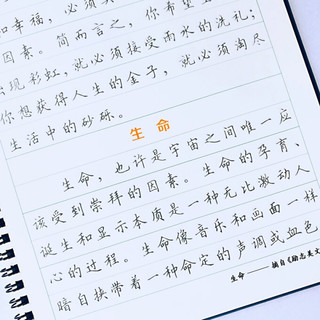 和幸福，必须具
因素。简而言之，你希望
出现彩虹，就必须接受雨水的洗礼；
你想获得人生的金子，就必须淘尽
生活中的砂砾。
生命
生命，也许是宇宙之间唯一应
该受到崇拜的因素。生命的孕育、
诞生和显示本质是一种无比激动人
心的过程。生命像音乐和画面一样
暗自挟带着一种命定的声调或血色
生命——摘自《励志美文